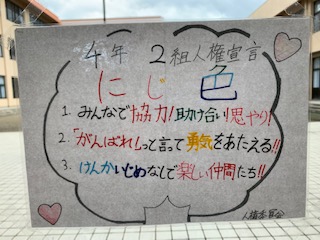 4年 2組人権宣言
にじ色
1. みんなで協力!助け合い思やり!
2.「がんばれ!」って言って勇気をあたえる!!
3. けんかいじめなしで楽しい仲間たち!!
人権委員会